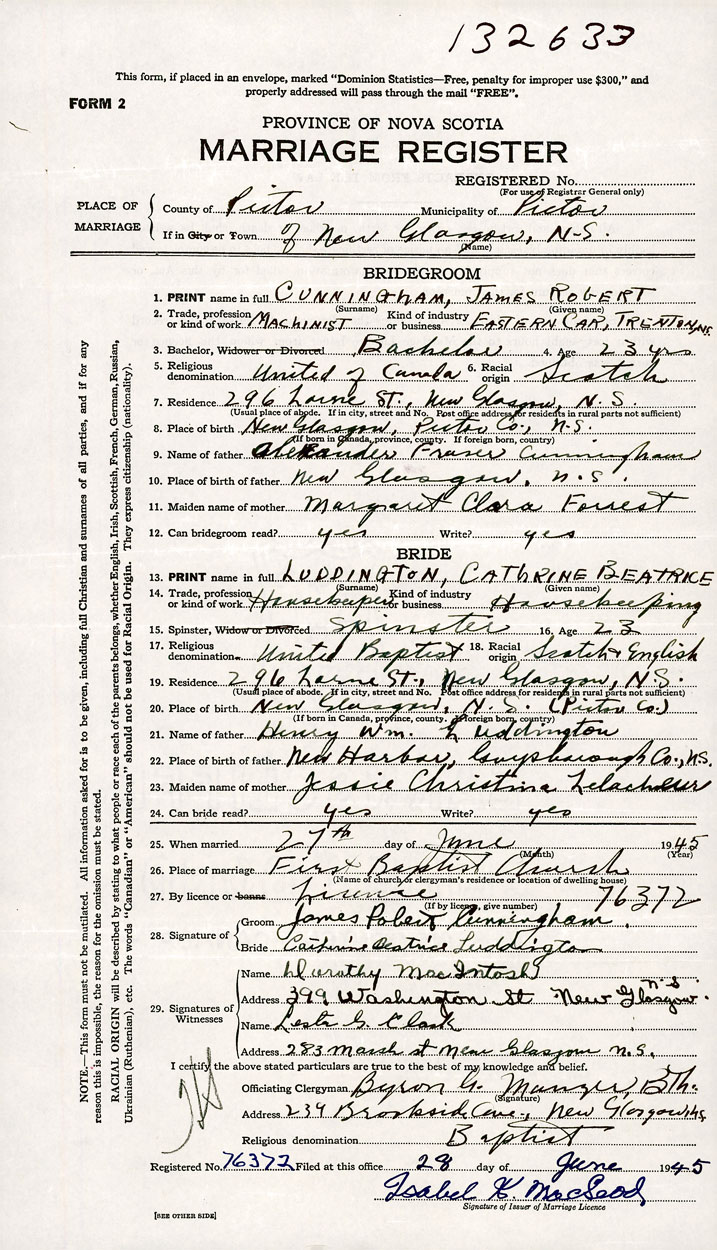 132633
This form, if placed in an envelope, marked "Dominion Statistics—Free, penalty for improper use $300," and
properly addressed will pass through the mail "FREE".
FORM 2
PROVINCE OF NOVA SCOTIA
MARRIAGE REGISTER
REGISTERED No.
(For use of Registrar General only)
PLACE OF MARRIAGE
County of Pictou Municipality of Pictou
If in City or Town of New Glasgow, N.S.
(Name)
BRIDEGROOM
1. PRINT name in full CUNNINGHAM, JAMES ROBERT
(Surname) (Given name)
2. Trade, profession or kind of work MACHINIST Kind of industry or business EASTERN CAR, TRENTON, N.S.
3. Bachelor, Widower or Divorced Bachelor 4. Age 23 yrs
5. Religious denomination United of Canada 6. Racial origin Scotch
7. Residence 296 Lorne St., New Glasgow, N.S.
(Usual place of abode. If in city, street and No. Post office address for residents in rural parts not sufficient)
8. Place of birth New Glasgow, Pictou Co., N.S.
(If born in Canada, province, county. If foreign born, country)
9. Name of father Alexander Fraser Cunningham
10. Place of birth of father New Glasgow, N.S.
11. Maiden name of mother Margaret Clara Forrest
12. Can bridegroom read? yes Write? yes
BRIDE
13. PRINT name in full LUDDINGTON, CATHRINE BEATRICE
(Surname) (Given name)
14. Trade, profession or kind of work Housekeeper Kind of industry or business Housekeeping
15. Spinster, Widow or Divorced Spinster 16. Age 23
17. Religious denomination United Baptist 18. Racial origin Scotch & English
19. Residence 296 Lorne St., New Glasgow, N.S.
(Usual place of abode. If in city, street and No. Post office address for residents in rural parts not sufficient)
20. Place of birth New Glasgow, N.S. (Pictou Co.)
(If born in Canada, province, county. If foreign born, country)
21. Name of father Henry Wm. Luddington
22. Place of birth of father New Harbor, Guysborough Co., N.S.
23. Maiden name of mother Jessie Christina Lelacheur
24. Can bride read? yes Write? yes
25. When married 27th day of June 1945
(Month) (Year)
26. Place of marriage First Baptist Church
(Name of church or clergyman's residence or location of dwelling house)
27. By licence or banns Licence 76372
(If by licence, give number)
28. Signature of
Groom James Robert Cunningham
Bride Cathrine Beatrice Luddington
29. Signatures of Witnesses
Name Dorothy MacIntosh
Address 399 Washington St New Glasgow N.S.
Name Lester G. Clark
Address 283 Marsh st New Glasgow N.S.
I certify the above stated particulars are true to the best of my knowledge and belief.
Officiating Clergyman Byron G. Munger, B.Th.
(Signature)
Address 239 Brookside Ave., New Glasgow N.S.
Religious denomination Baptist
Registered No. 76372 Filed at this office 28 day of June 1945
Isabel K. MacLeod
Signature of Issuer of Marriage Licence
[SEE OTHER SIDE]
NOTE.—This form must not be mutilated. All information asked for is to be given, including full Christian and surnames of all parties, and if for any
reason this is impossible, the reason for the omission must be stated.
RACIAL ORIGIN will be described by stating to what people or race each of the parents belongs, whether English, Irish, Scottish, French, German, Russian,
Ukrainian (Ruthenian), etc. The words "Canadian" or "American" should not be used for Racial Origin. They express citizenship (nationality).